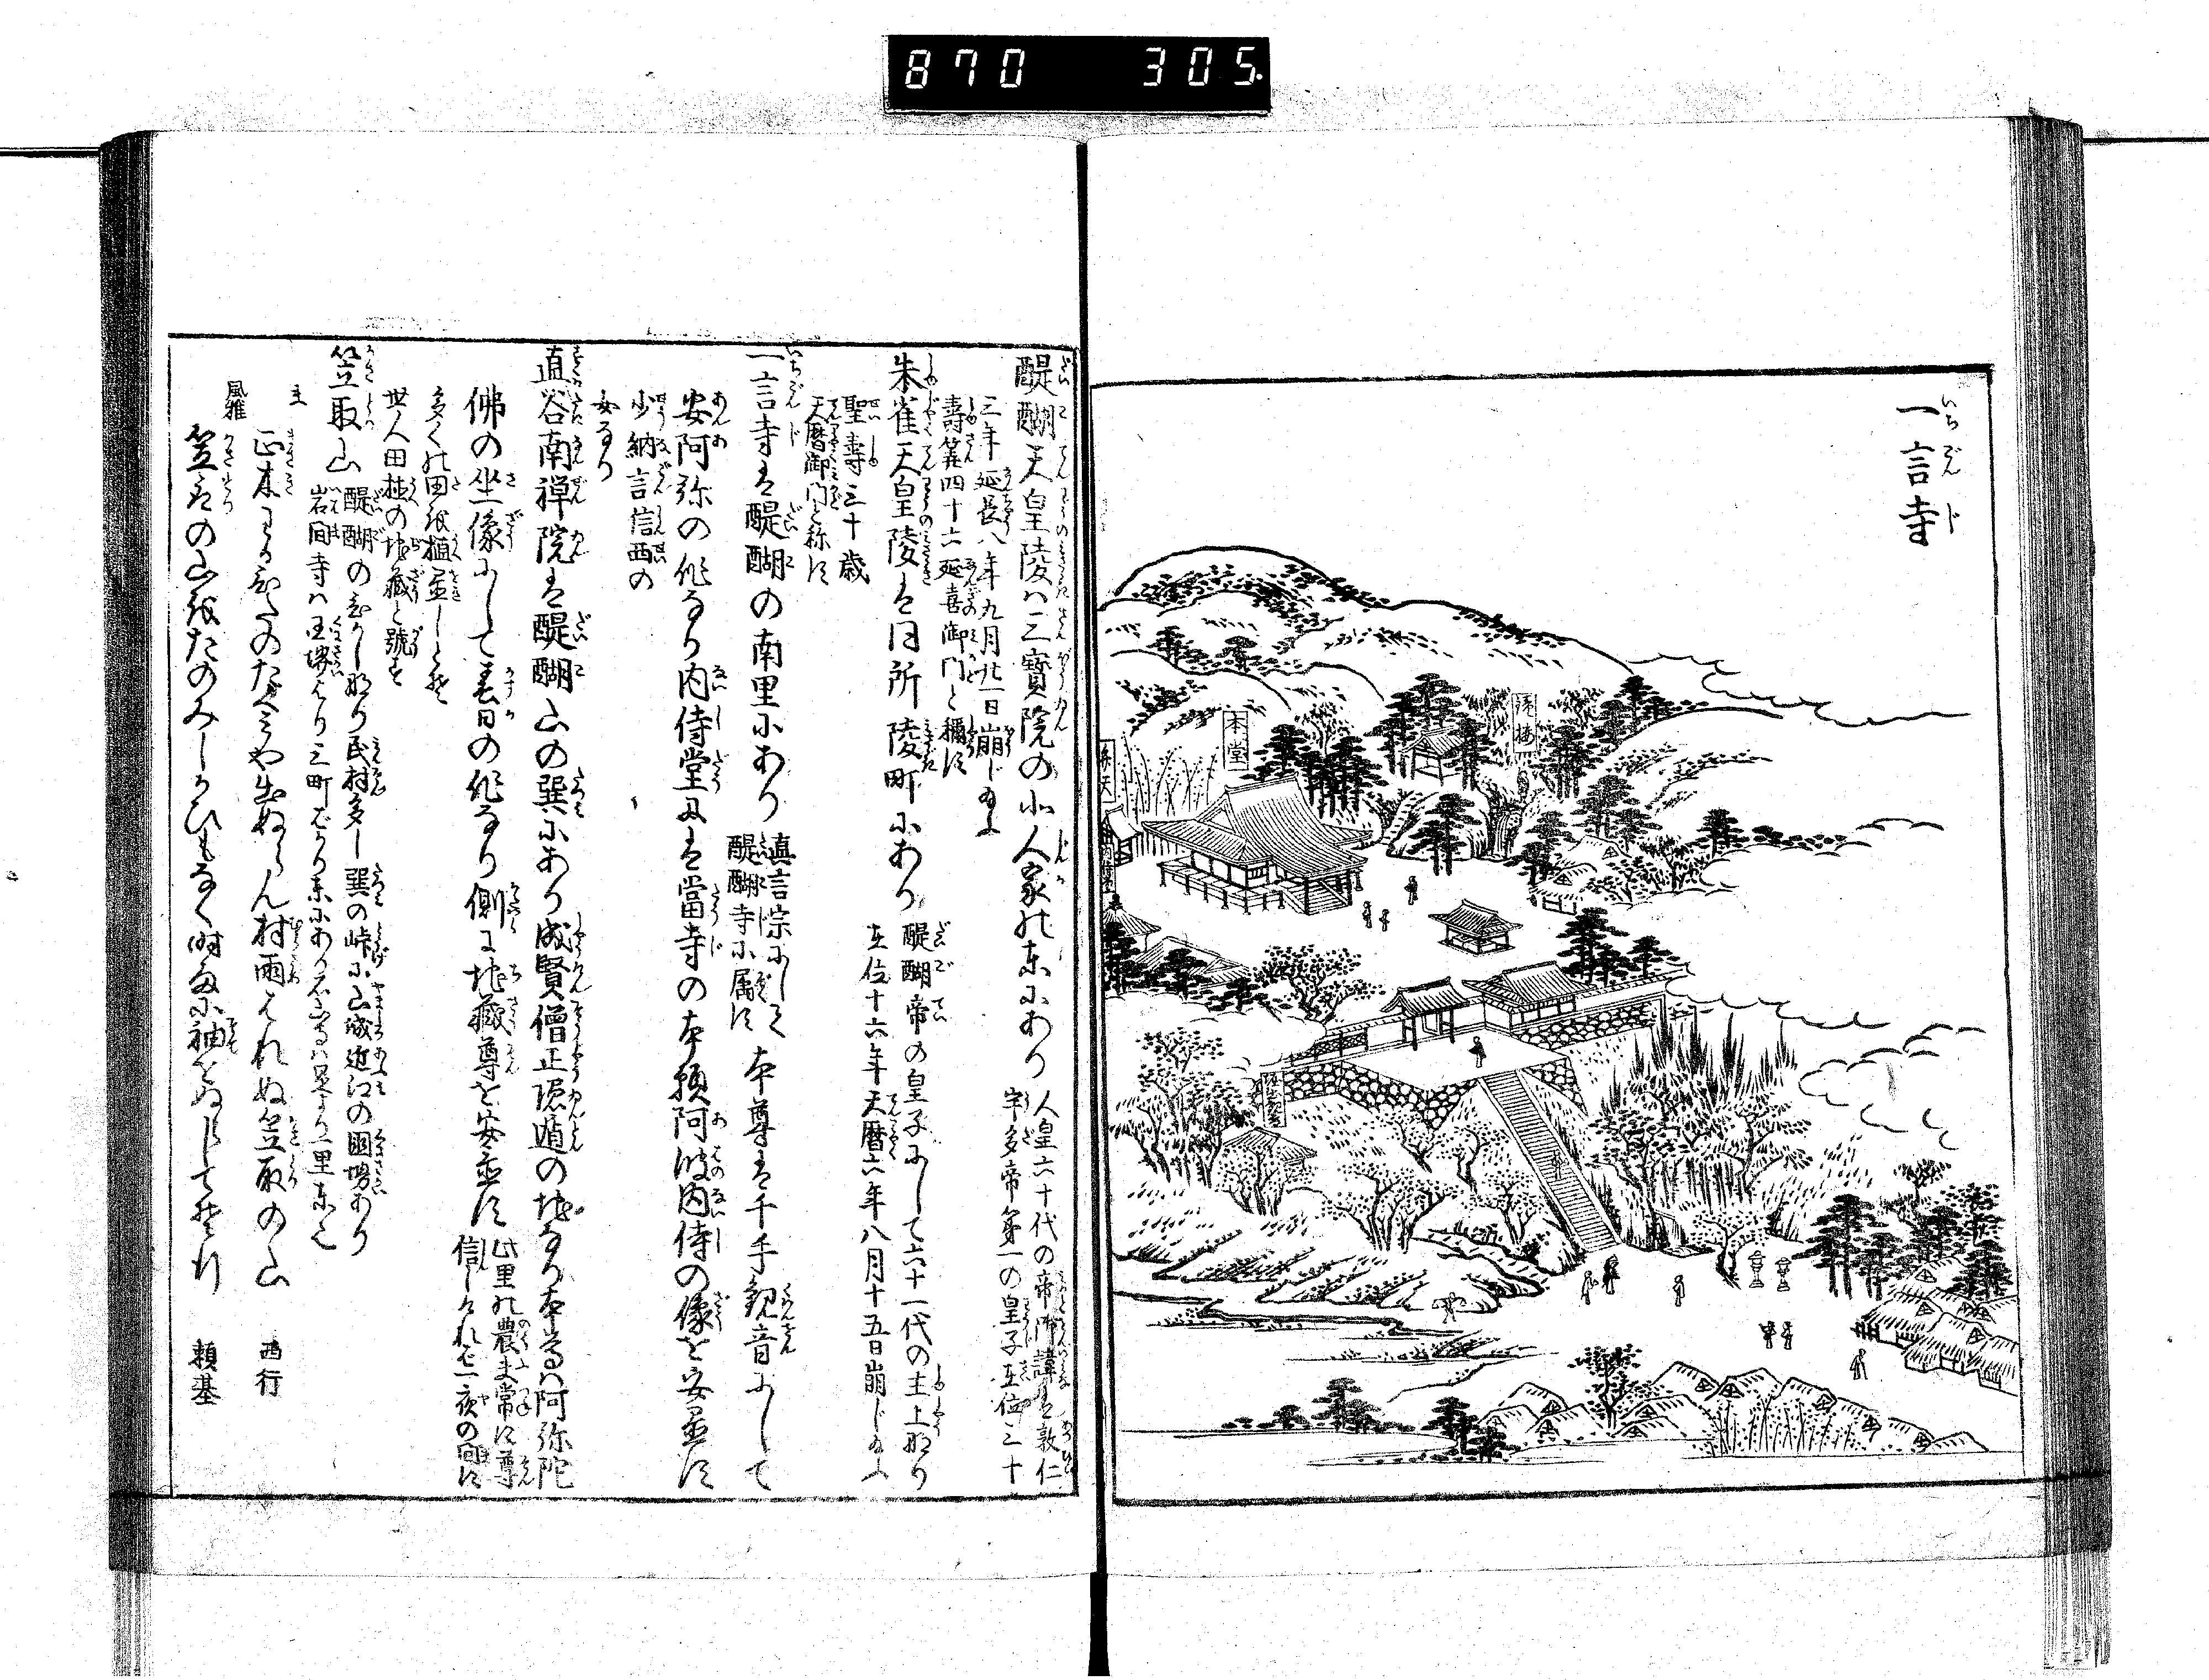 870 305
一言寺
いちごんじ
本堂
弁天
醍醐天皇陵ハ三寶院の北人家の東にあり 人皇六十代の帝御諱は敦仁
宇多帝第一の皇子在位三十
三年延長八年九月廿一日崩じ給ふ
壽算四十六延喜御門と稱す
朱雀天皇陵は同所陵町にあり 醍醐帝の皇子にして六十一代の主上那り
在位十六年天暦六年八月十五日崩じ給ふ
聖壽三十歳
天暦御門と称す
一言寺は醍醐の南里にあり 真言宗にして
醍醐寺に属す 本尊は千手観音にして
安阿弥の作なり内侍堂には當寺の本願阿波内侍の像を安置す
少納言信西の
女なり
直谷南禅院は醍醐山の巽にあり成賢僧正隠遁の地なり本尊ハ阿弥陀
佛の坐像にして春日の作なり側に地藏尊を安置す 此里の農夫常に尊
信しければ一夜の間に
多くの田を植置しとぞ
世人田植の地藏と號す
笠取山 醍醐の東にあり民村多し巽の峠に山城近江の國堺あり
岩間寺ハ国堺より三町ばかり東にあり石山寺ハ是より一里東也
西行
風雅 笠取の山をたのみしかひもなく時雨に袖をぬらしてぞ行 頼基